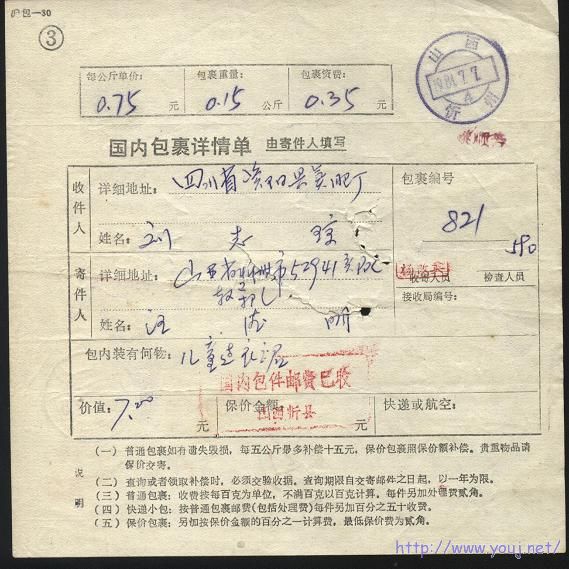 沪包—30
③
每公斤单价：
0.75 元
包裹重量：
0.15 公斤
包裹资费：
0.35 元
山西
1984.7.7.
4
忻州
国内包裹详情单 由寄件人填写
收件人
详细地址：四川省资阳县美肥厂
姓名：刘志琼
包裹编号
821
590
寄件人
详细地址：山西省忻州市52941部队
姓名：汪
收寄人员 检查人员
接收局编号：
包内装有何物：儿童连衣裙
国内包件邮费已收
山西忻县
价值：7.00
保价金额：
快递或航空：
说明
（一）普通包裹如有遗失毁损，每五公斤最多补偿十五元，保价包裹照保价额补偿。贵重物品请
保价交寄。
（二）查询或者领取补偿时，必须交验收据。查询期限自交寄邮件之日起，以一年为限。
（三）普通包裹：收费按每百克为单位，不满百克以百克计算。每件另加处理费贰角。
（四）快递小包：按普通包裹邮费（包括处理费）每件另加百分之五十收费。
（五）保价包裹：另加按保价金额的百分之一计算费，最低保价费为贰角。
http://www.youj.net/